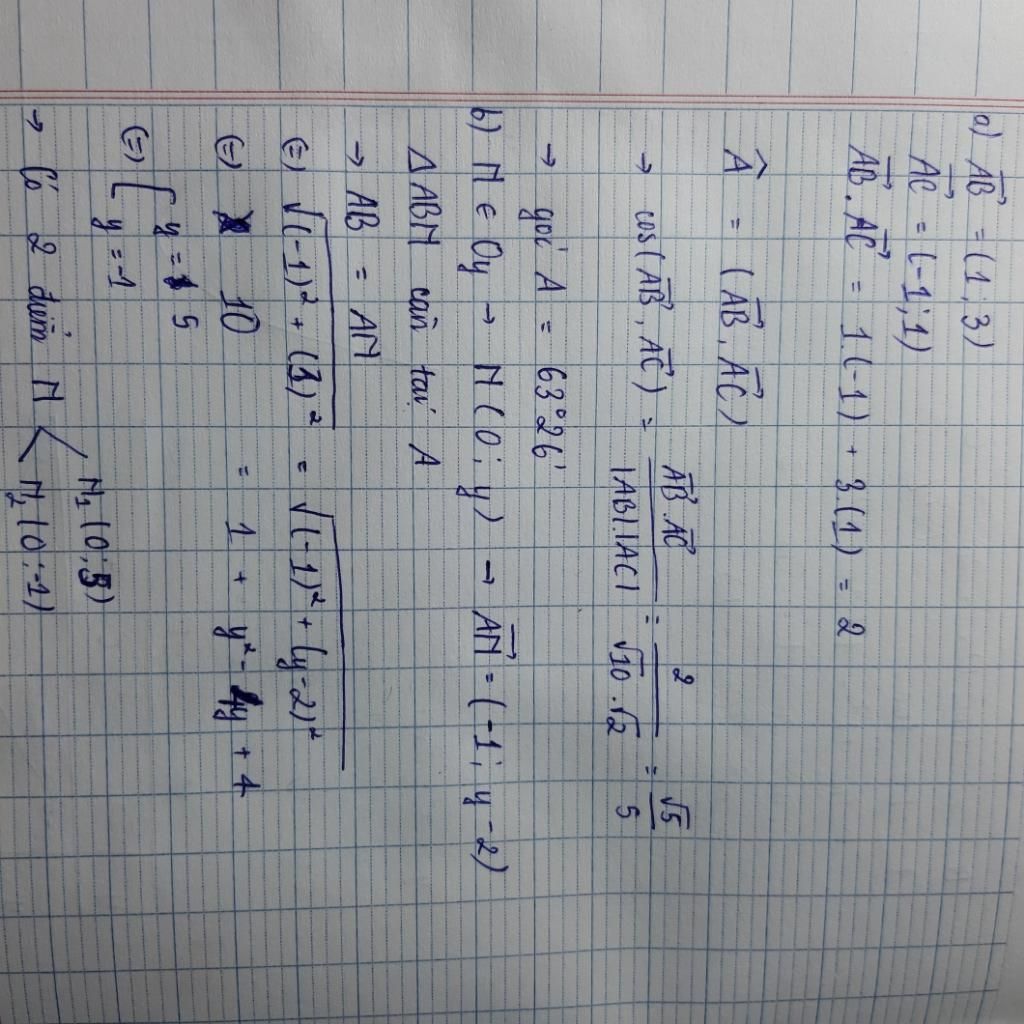 a) AB = (1; 3)
AC = (-1; 1)
AB . AC = 1.(-1) + 3.(1) = 2
Â = (AB, AC)
→ cos(AB, AC) = AB.AC / |AB|.|AC| = 2 / √10.√2 = √5 / 5
→ góc A = 63°26'
b) M ∈ Oy → M(0; y) → AM = (-1; y-2)
Δ ABM cân tại A
→ AB = AM
(=) √(-1)² + (3)² = √(-1)² + (y-2)²
(=) 10 = 1 + y² - 4y + 4
(=) [ y = 5
y = -1
→ Có 2 điểm M < M₁ (0; 5)
M₂ (0; -1)